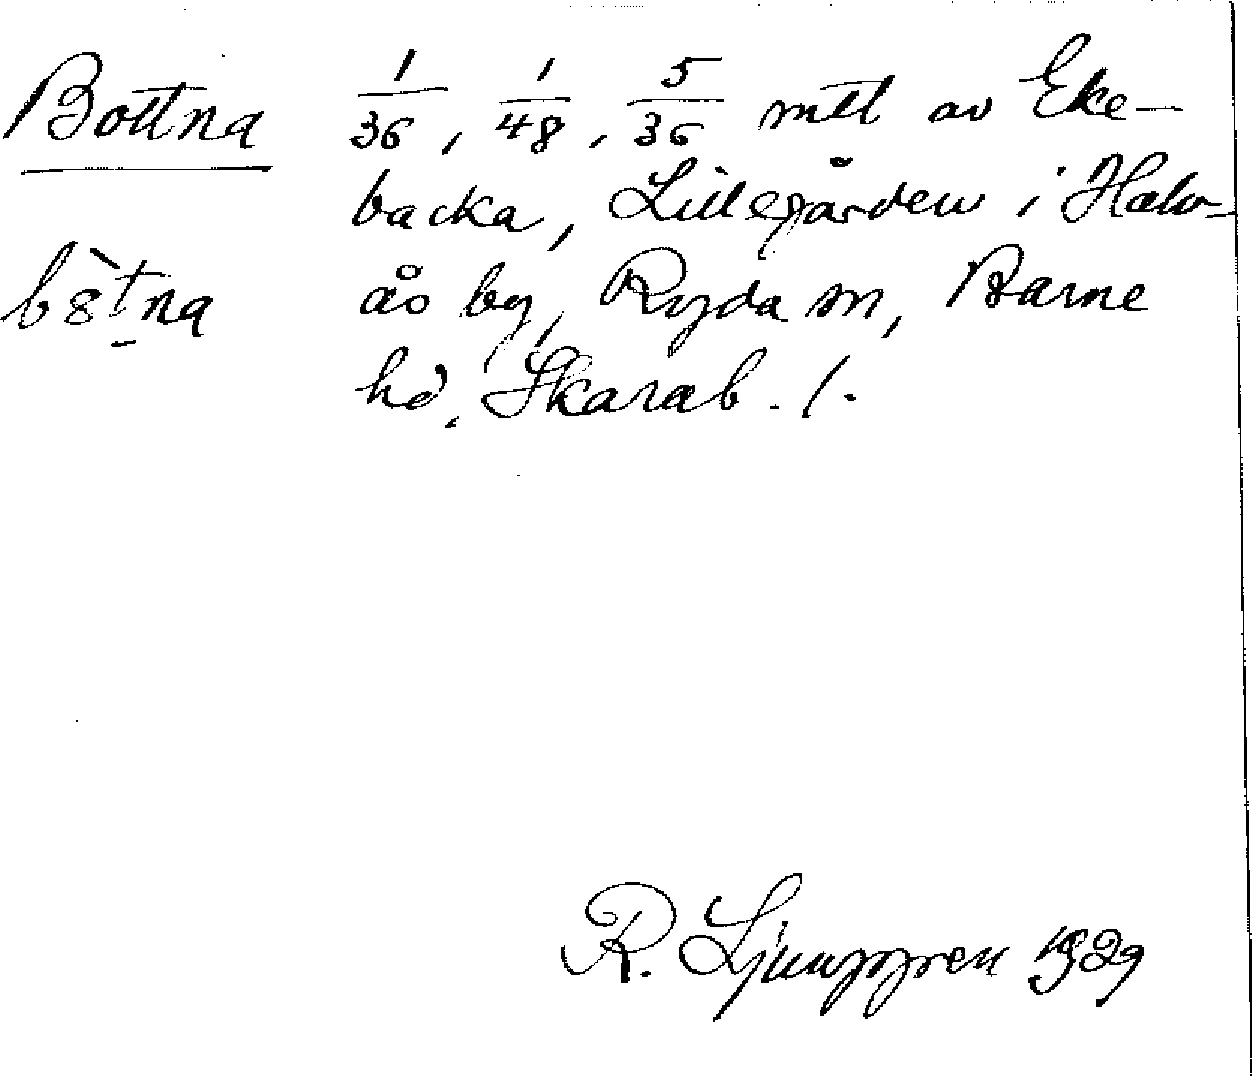 Bottna 1/36, 1/48, 5/36 mtl av Eke-
backa, Lillegården i Halv-
ås by, Ryda sn, Barne
hd, Skarab. l.
bȣ̀t̠na
R. Ljunggren 1929